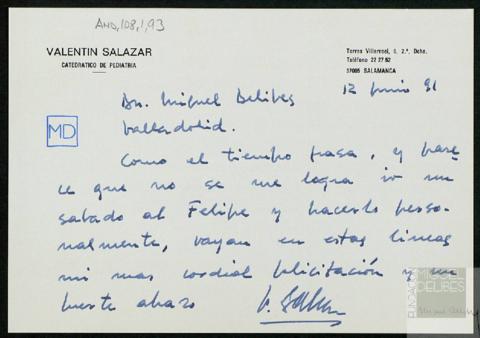 AND,108,1,93
VALENTIN SALAZAR
CATEDRATICO DE PEDIATRIA
Torres Villarroel, 6, 2.ª Dcha.
Teléfono 22 27 62
37005 SALAMANCA
Dn. Miguel Delibes 12 junio 91
Valladolid.
MD
Como el tiempo pasa, y pare-
ce que no se me logra ir un
sabado al Felipe y hacerlo perso-
nalmente, vayan en estas lineas
mi mas cordial felicitación y un
fuerte abrazo
FUNDACIÓN
MIGUEL
DELIBES